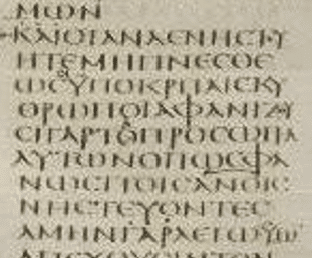 ΜΩΝ
ΚΑΙΟΤΑΝΔΕΝΗСΤΕΥ
ΗΤΕΜΗΓΙΝΕСΘΕ
ΩСΥΠΟΚΡΙΤΑΙСΚΥ
ΘΡΩΠΟΙΑΦΑΝΙΖΟΥ
СΙΓΑΡΤΟΠΡΟСΩΠΑ
ΑΥΤΩΝΟΠΩСΦΑ
ΝΩСΙΤΟΙСΑΝΟΙС
ΝΗСΤΕΥΟΝΤΕС
ΑΜΗΝΓΑΡΛΕΓΩ